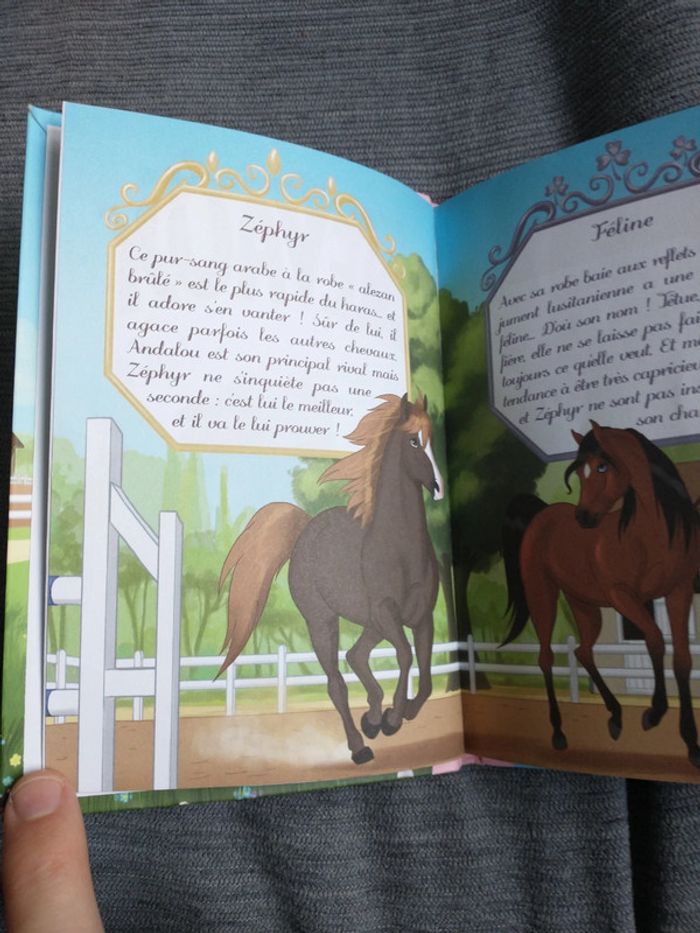 Zéphyr
Ce pur-sang arabe à la robe « alezan
brûlé » est le plus rapide du haras... et
il adore s'en vanter ! Sûr de lui, il
agace parfois les autres chevaux.
Andalou est son principal rival mais
Zéphyr ne s'inquiète pas une
seconde : c'est lui le meilleur,
et il va le lui prouver !
Féline
Avec sa robe baie aux reflets
jument lusitanienne a une
féline... D'où son nom !
fière, elle ne se laisse pas
toujours ce qu'elle veut. Et
tendance à être très
et Zéphyr ne sont pas
son